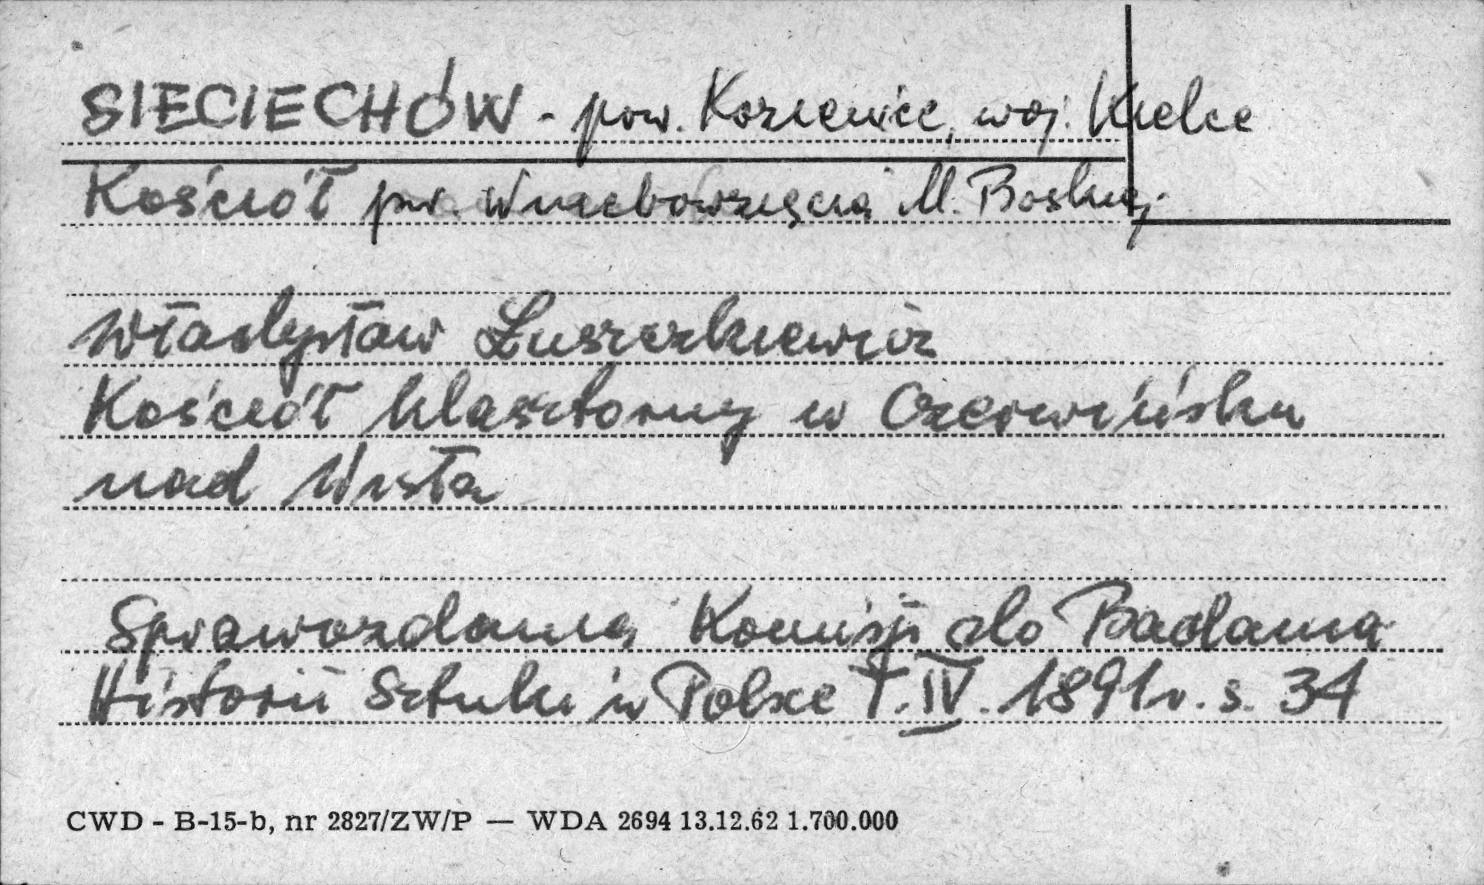 SIECIECHÓW - pow. Kozienice, woj. Kielce
Kościół pw. Wniebowzięcia M. Boskiej
Władysław Łuszczkiewicz
Kościół klasztorny w Czerwińsku
nad Wisłą
Sprawozdania Komisji do Badania
Historii Sztuki w Polsce T. IV. 1891 r. s. 34
CWD - B-15-b, nr 2827/ZW/P — WDA 2694 13.12.62 1.700.000